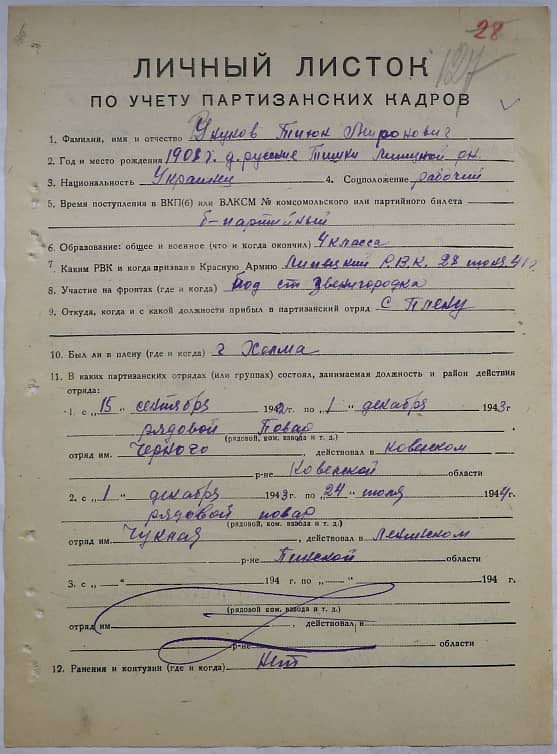 28
127
ЛИЧНЫЙ ЛИСТОК
ПО УЧЕТУ ПАРТИЗАНСКИХ КАДРОВ
1. Фамилия, имя и отчество Миронович
2. Год и место рождения 1908 г. д. русские Тишки рн.
3. Национальность Украинец 4. Соцположение рабочий
5. Время поступления в ВКП(б) или ВЛКСМ № комсомольского или партийного билета
б-партийный
6. Образование: общее и военное (что и когда окончил) 4 класса
7. Каким РВК и когда призван в Красную Армию Р.В.К. 28 41 г.
8. Участие на фронтах (где и когда) Под ст Звенигородка
9. Откуда, когда и с какой должности прибыл в партизанский отряд с Плену
10. Был ли в плену (где и когда) г Холма
11. В каких партизанских отрядах (или группах) состоял, занимаемая должность и район действия
отряда:
1. с „15 “ сентября 1942 г. по „1 “ декабря 1943 г
рядовой Повар
(рядовой, ком. взвода и т. д.)
отряд им. Черного, действовал в Ковенском
р-не Ковенской области
2. с „1 “ декабря 1943 г. по „24 “ июля 1944 г.
рядовой повар
(рядовой, ком. взвода и т. д.)
отряд им. действовал в
р-не Пинской области
3. с „ “ 194 г. по „ “ 194 г.
(рядовой, ком. взвода и т. д.)
отряд им. , действовал в
р-не области
12. Ранения и контузии (где и когда) Нет